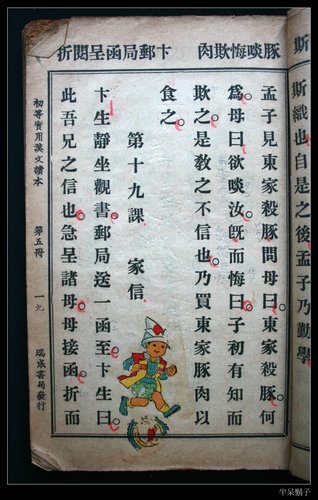 斯
斯織也自是之後孟子乃勤學
豚啖悔欺肉
卞郵局函呈閱折
孟子見東家殺豚問母曰東家殺豚何
爲母曰欲啖汝旣而悔曰子初有知而
欺之是敎之不信也乃買東家豚肉以
食之
第十九課 家信
卞生靜坐觀書郵局送一函至卞生曰
此吾兄之信也急呈諸母母接函折而
初等實用漢文讀本 第五冊 一九 瑞成書局發行